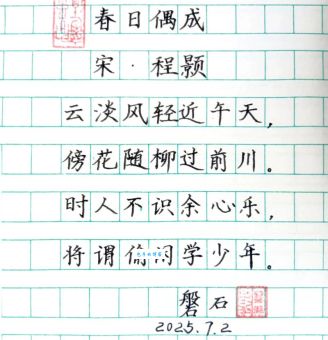 春日偶成
宋·程颢
云淡风轻近午天，
傍花随柳过前川。
时人不识余心乐，
将谓偷闲学少年。
磐石
2025.7.2